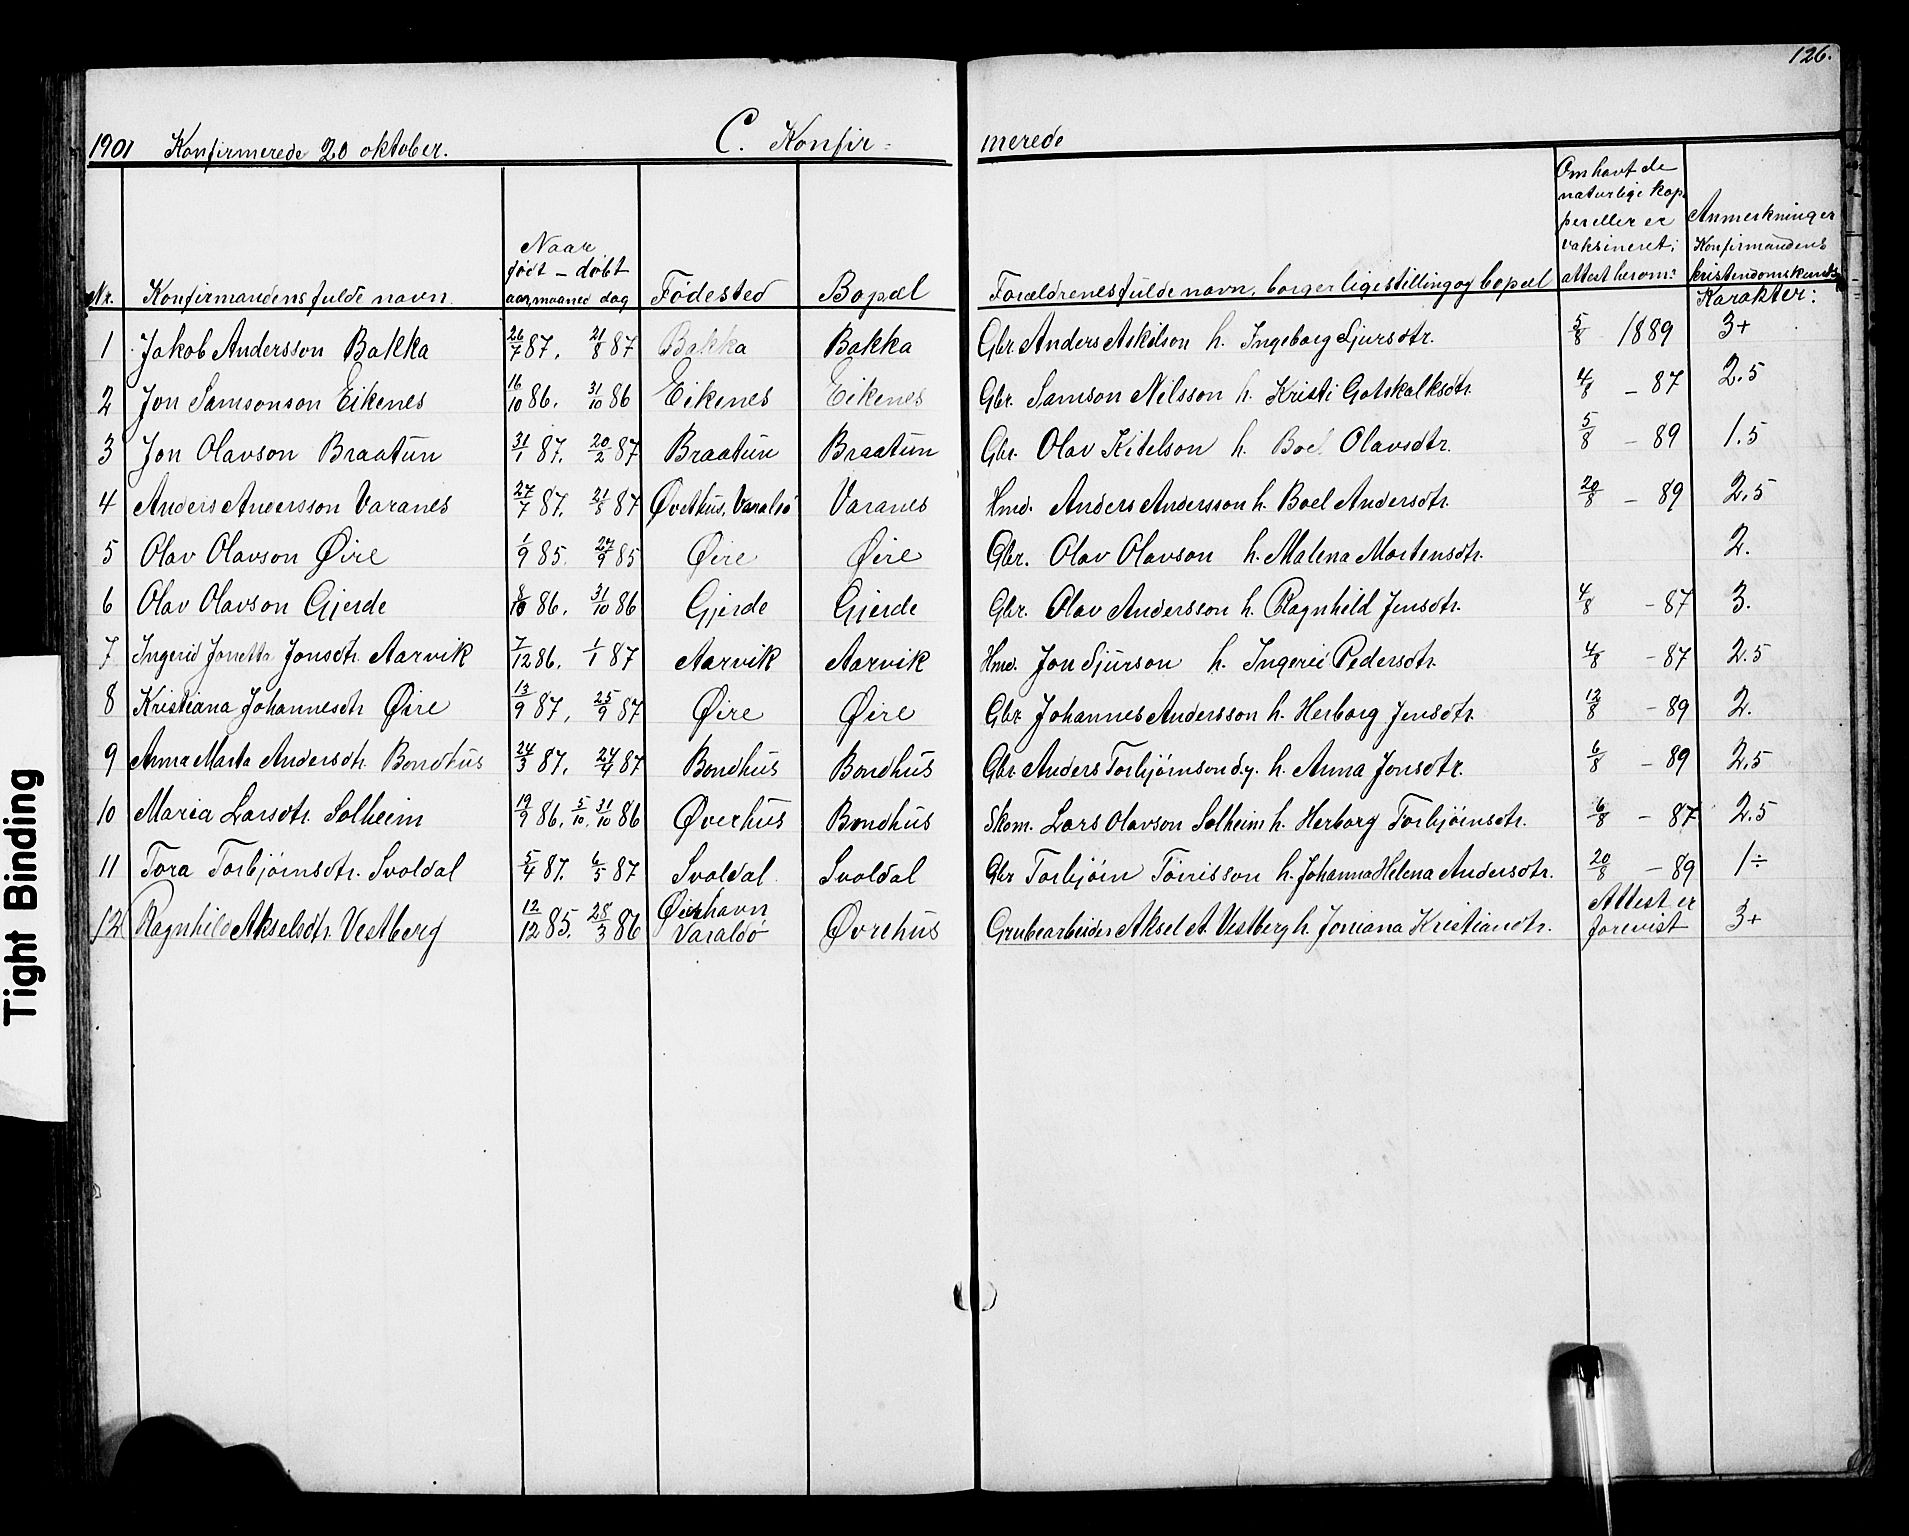 126.
1901 Konfirmerede 20 oktober. C. Konfir- merede
Nr. Konfirmandens fulde navn. Naar født - døbt aar, maaned dag Fødested Bopæl Forældrenes fulde navn, borgerlige stilling og bopæl Om havt de naturlige kopper eller er vaksineret; attest herom: Anmerkninger Konfirmandens kristendomskundsk. Karakter:
1 Jakob Andersson Bakka 26/7 87. 21/8 87 Bakka Bakka Gbr. Anders Askilson h. Ingeborg Sjursdtr. 5/8 1889 3+
2 Jon Samsonson Eikenes 16/10 86. 31/10 86 Eikenes Eikenes Gbr. Samson Nilsson h. Kristi Gotskalksdtr. 4/8 - 87 2.5
3 Jon Olavson Braatun 31/1 87. 20/2 87 Braatun Braatun Gbr. Olav Kitelson h. Boel Olavsdtr. 5/8 - 89 1.5
4 Anders Andersson Varanes 27/7 87. 21/8 87 Øvethus, Varalsø Varanes Hmd. Anders Andersson h. Boel Andersdtr. 20/8 - 89 2.5
5 Olav Olavson Øire 1/9 85. 27/9 85 Øire Øire Gbr. Olav Olavson h. Malena Mortensdtr. 2.
6 Olav Olavson Gjerde 8/10 86. 31/10 86 Gjerde Gjerde Gbr. Olav Andersson h. Ragnhild Jensdtr. 4/8 - 87 3.
7 Ingerid Jonetta Jonsdtr. Aarvik 7/12 86. 1/1 87 Aarvik Aarvik Hmd. Jon Sjurson h. Ingerid Pedersdtr. 4/8 - 87 2.5
8 Kristiana Johannesdtr Øire 13/9 87, 25/9 87 Øire Øire Gbr. Johannes Andersson h. Herborg Jensdtr. 12/8 - 89 2.
9 Anna Marta Andersdtr. Bondhus 24/3 87. 24/4 87 Bondhus Bondhus Gbr. Anders Torbjørnson d.y. h. Anna Jonsdtr. 6/8 - 89 2.5
10 Maria Larsdtr. Solheim 19/9 86. 5/10. 31/10 86 Øverhus Bondhus Skom. Lars Olavson Solheim h. Herborg Torbjørnsdtr. 6/8 - 87 2.5
11 Tora Torbjørnsdtr. Svoldal 5/4 87. 6/5 87 Svoldal. Svoldal Gbr Torbjørn Tørrisson h. Johanna Helena Andersdtr. 20/8 - 89 1÷
12 Ragnhild Akselsdtr. Vestberg 12/12 85. 28/3 86 Varaldsø Øvrehus Grubearbeider Aksel A. Vestberg h. Joniana Kristiandtr. Attest er forevist 3+
Tight Binding